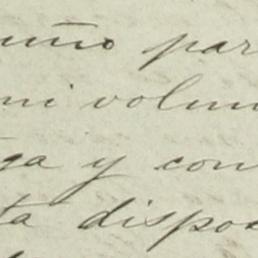 uño par
mi volun
ga y con
ta dispos